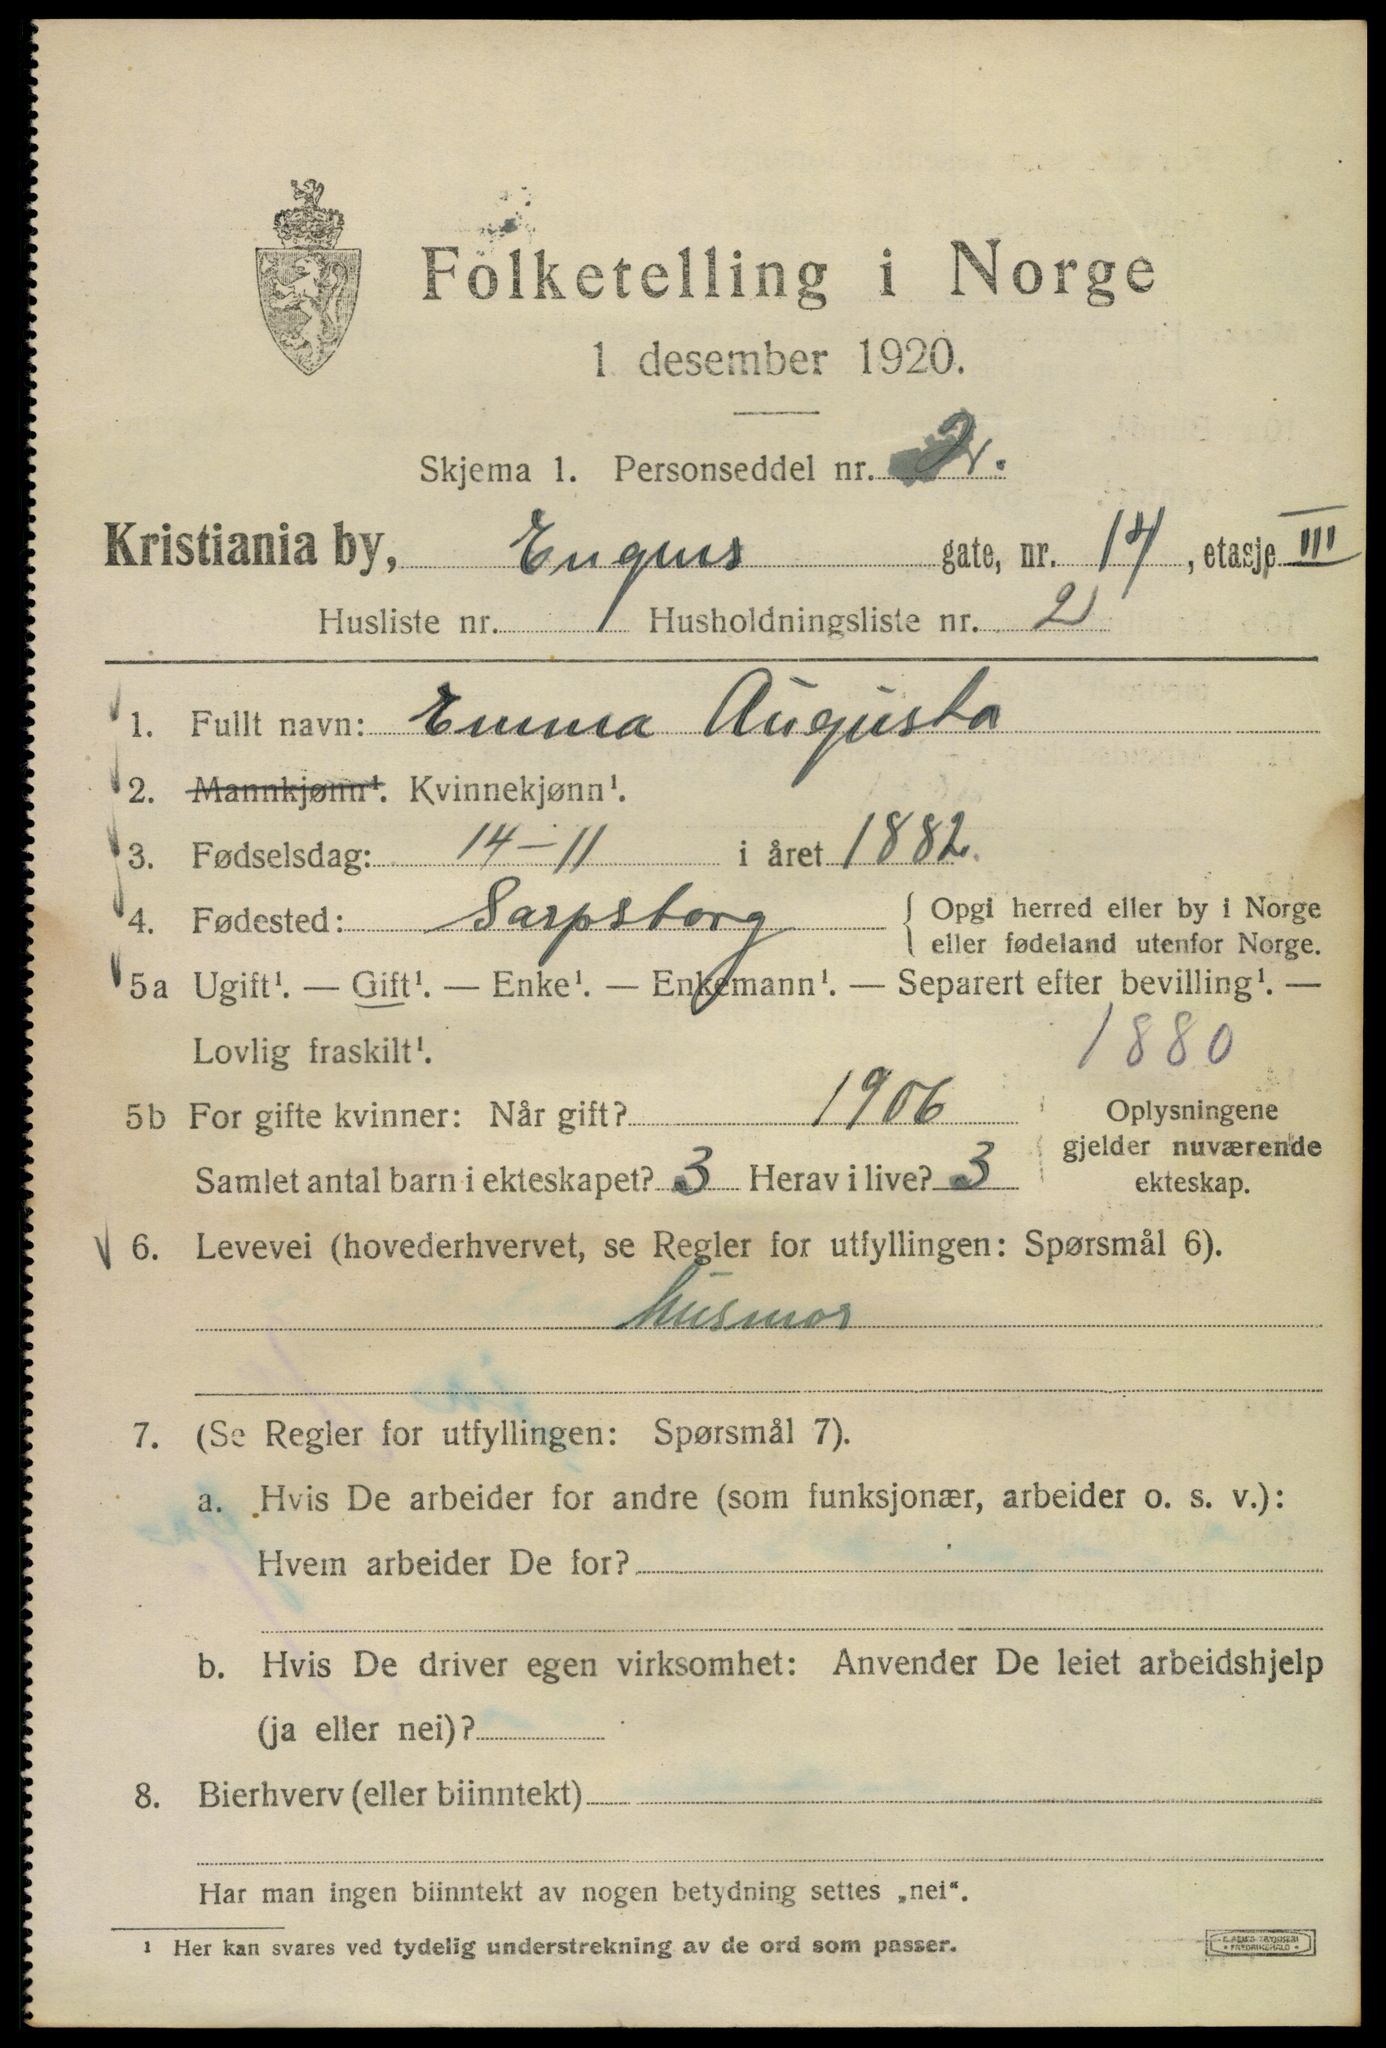 Folketelling i Norge
1. desember 1920.
Skjema 1. Personseddel nr. 2.
Kristiania by, Enguns gate, nr. 14, etasje III
Husliste nr. 1 Husholdningsliste nr. 2
1. Fullt navn: Emma Augusta
2. Mannkjønn¹. Kvinnekjønn¹.
3. Fødselsdag: 14-11 i året 1882.
4. Fødested: Sarpsborg { Opgi herred eller by i Norge
eller fødeland utenfor Norge.
5a Ugift¹. — Gift¹. — Enke¹. — Enkemann¹. — Separert efter bevilling¹. —
Lovlig fraskilt¹. 1880
5b For gifte kvinner: Når gift? 1906 Oplysningene
gjelder nuværende
Samlet antal barn i ekteskapet? 3 Herav i live? 3 ekteskap.
6. Levevei (hovederhvervet, se Regler for utfyllingen: Spørsmål 6).
Husmor
7. (Se Regler for utfyllingen: Spørsmål 7).
a. Hvis De arbeider for andre (som funksjonær, arbeider o. s. v.):
Hvem arbeider De for?
b. Hvis De driver egen virksomhet: Anvender De leiet arbeidshjelp
(ja eller nei)?
8. Bierhverv (eller biinntekt)
Har man ingen biinntekt av nogen betydning settes „nei“.
¹ Her kan svares ved tydelig understrekning av de ord som passer.